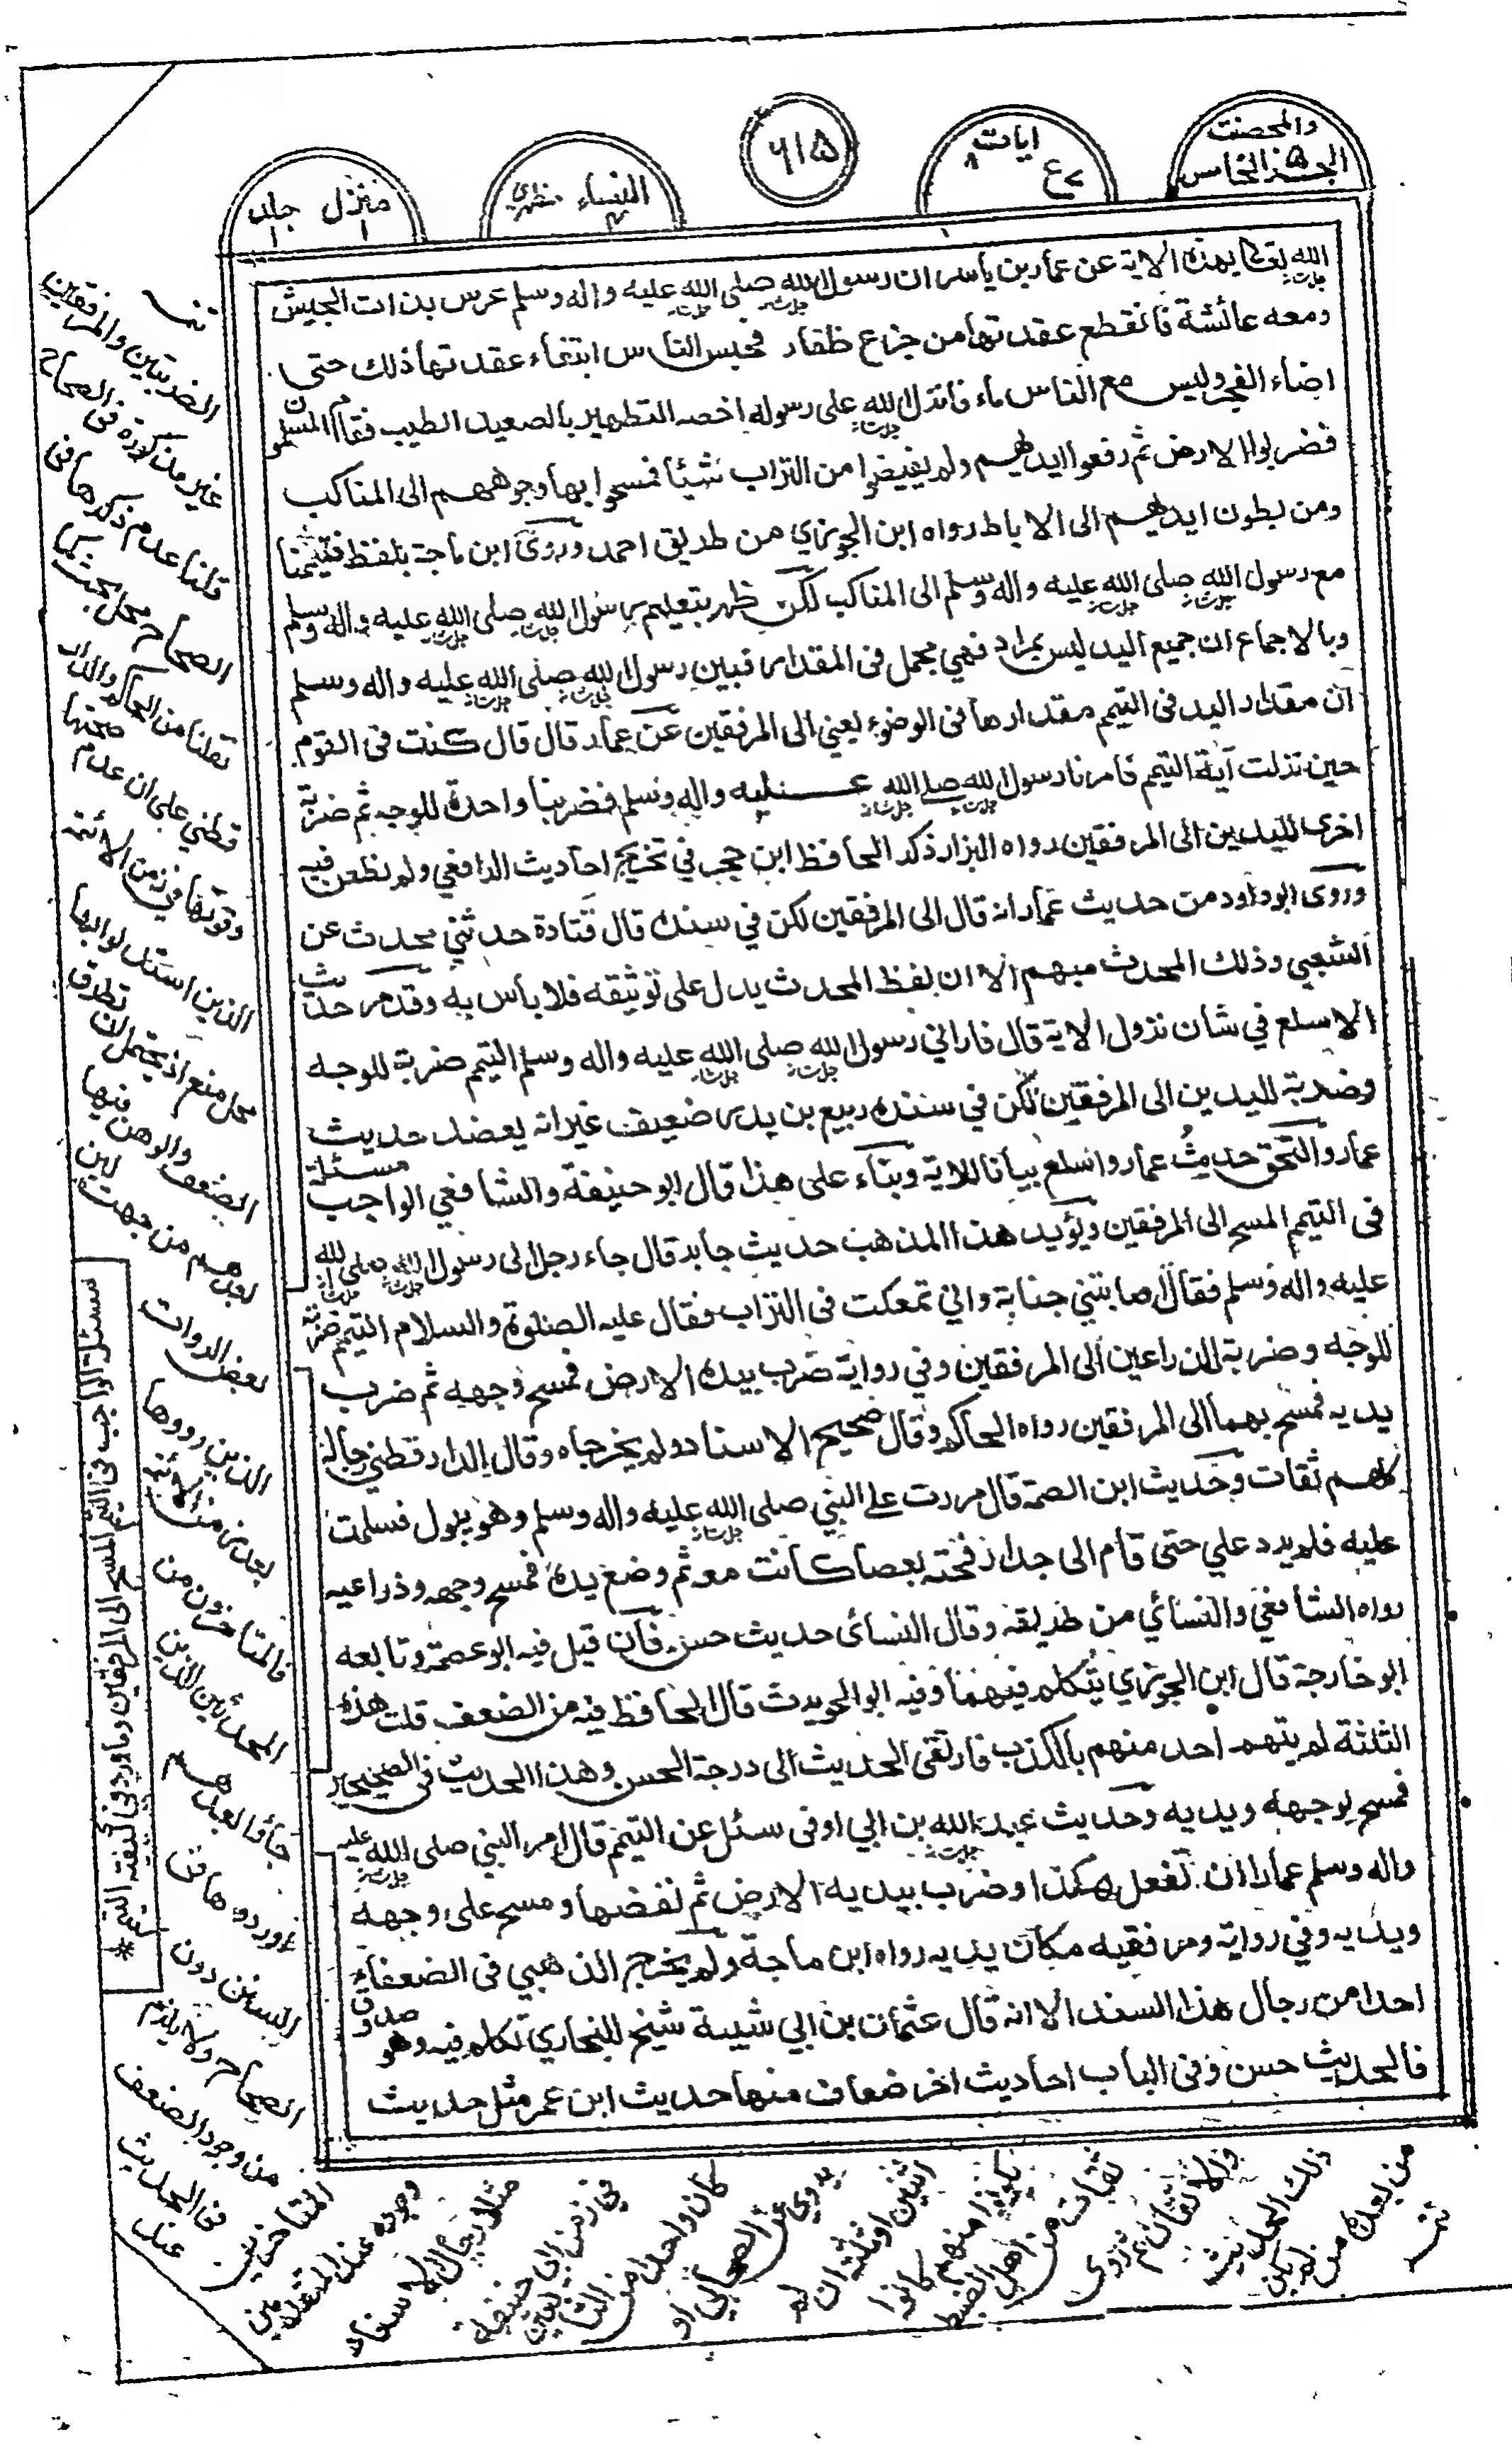 والمحصنت
الجزء الخامس
ايات
٨
ع ٧
٦١٥
النساء
٤
منزل جلد
١ ١
الله تعالى بهذه الاية عن عمار بن ياسر ان رسول الله صلى الله عليه واله وسلم عرس بذات الجيش
ومعه عائشة فانقطع عقد تها من جزع ظفار فحبس الناس ابتغاء عقد تها ذلك حتى
اضاء الفجر وليس مع الناس ماء فانزل الله على رسوله رخصة التطهير بالصعيد الطيب فقام المسلمون
فضربوا الارض ثم رفعوا ايديهم ولم يقبضوا من التراب شيئا فمسحوا بها وجوههم الى المناكب
ومن بطون ايديهم الى الاباط رواه ابن الجوزي من طريق احمد وروى ابن ماجة بلفظ فتيممنا
مع رسول الله صلى الله عليه واله وسلم الى المناكب لكن ظهر بتعليم رسول الله صلى الله عليه واله وسلم
وبالاجماع ان جميع اليد ليس بمراد فهي مجمل فى المقدار فبين رسول الله صلى الله عليه واله وسلم
ان مقدار اليد فى التيمم مقدارها فى الوضوء يعني الى المرفقين عن عمار قال قال كنت فى القوم
حين نزلت آية التيمم فامرنا رسول الله صلى الله عليه واله وسلم فضربنا واحدة للوجه ثم ضربة
اخرى لليدين الى المرفقين رواه البزار ذكر الحافظ ابن حجر في تخريج احاديث الرافعي ولم نطعن فيه
وروى ابوداود من حديث عمار انه قال الى المرفقين لكن في سنده قال قتادة حدثني محدث عن
الشعبي وذلك المحدث مبهم الا ان لفظ المحدث يدل على توثيقه فلا باس به وقد مر حديث
الاسلع في شان نزول الاية قال فاراني رسول الله صلى الله عليه واله وسلم التيمم ضربة للوجه
وضربة لليدين الى المرفقين لكن في سنده ربيع بن بدر ضعيف غير انه يعضد حديث
عمار والتحق حديث عمار واسلع بيانا للاية وبناء على هذا قال ابو حنيفة والشافعي الواجب
مسئلة
فى التيمم المسح الى المرفقين ويؤيد هذا المذهب حديث جابر قال جاء رجل الى رسول الله صلى الله
عليه واله وسلم فقال اصابتني جنابة واني تمعكت فى التراب فقال عليه الصلوة والسلام التيمم ضربة
للوجه وضربة للذراعين الى المرفقين وفي رواية ضرب بيده الارض فمسح وجهه ثم ضرب
يديه فمسح بهما الى المرفقين رواه الحاكم وقال صحيح الاسناد ولم يخرجاه وقال الدارقطني رجاله
كلهم ثقات وحديث ابن الصمة قال مررت على النبي صلى الله عليه واله وسلم وهو يبول فسلمت
عليه فلم يرد علي حتى قام الى جدار فحته بعصا كانت معه ثم وضع يده فمسح وجهه وذراعيه
رواه الشافعي والنسائي من طريقه وقال النسائى حديث حسن فان قيل فيه ابو عصمة وتابعه
ابو خارجة قال ابن الجوزي يتكلم فيهما وفيه ابو الحويرث قال الحافظ فيه من الضعف قلت هذه
الثلثة لم يتهم احد منهم بالكذب فارتقى الحديث الى درجة الحسن وهذا الحديث فى الصحيحين
فمسح بوجهه ويديه وحديث عبد الله بن ابي اوفى سئل عن التيمم قال امر النبي صلى الله عليه
واله وسلم عمارا ان تفعل هكذا وضرب بيديه الارض ثم نفضها ومسح على وجهه
ويديه وفي رواية ومرفقيه مكان يديه رواه ابن ماجة ولم يخرج الذهبي فى الضعفاء
احدا من رجال هذا السند الا انه قال عثمان بن ابي شيبة شيخ للبخاري تكلم فيه وهو صدوق
فالحديث حسن وفى الباب احاديث اخر ضعاف منها حديث ابن عمر مثل حديث
الضربتين والمرفقين
غير مذكورة فى الصحاح
قلنا عدم ذكرها فى
الصحاح محل بحث
نقلنا من الحاكم والدار
قطني على ان عدم صحتها
وقوتها في زمن الائمة
الذين استدلوا بها
محل منع اذ يحتمل ان تطرق
الضعف والوهن فيها
بعدهم من جهت لين
بعض الروات
الذين رووها
بعد من الائمة
فالمتاخرون من
المحدثين الذين
جاؤا بعدهم
اوردوها فى
السنن دون
الصحاح ولا يلزم
من وجود الضعف
فى الحديث
عند
المتاخرين
وجوده عند المتقدمين
مثلا رجال الاسناد
في زمن ابي حنيفة
كان واحدا من التابعين
يروي عن الصحابي او
اثنين او ثلثة ان لم
يكونوا منهم كانوا
ثقات من اهل الضبط
والاتقان ثم روى
ذلك الحديث
من بعده من لم يكن
مسئلة الواجب فى التيمم المسح الى المرفقين وما ورد فى كيفيته